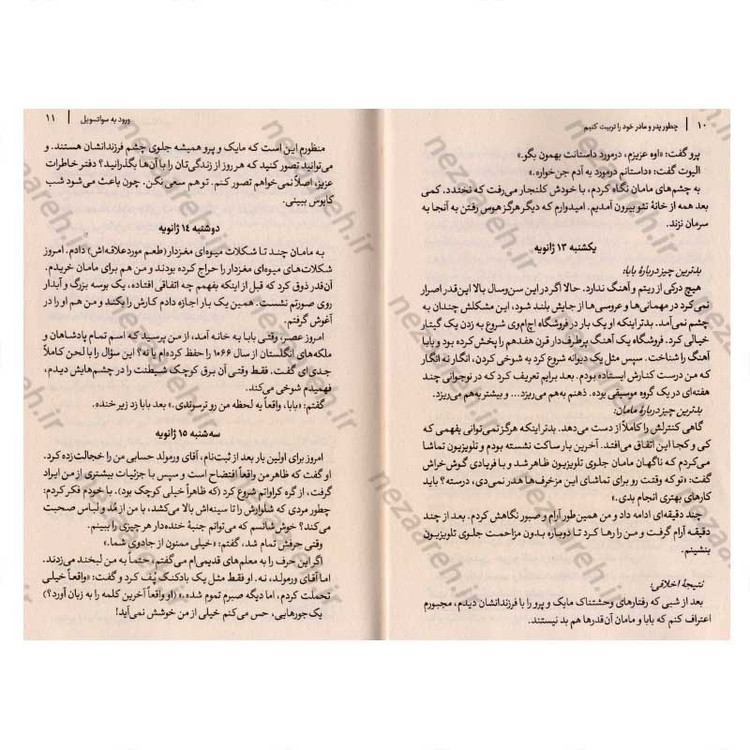 ۱۰ | چطور پدر و مادر خود را تربیت کنیم
پرو گفت: «اوه عزیزم، درمورد داستانت بهمون بگو.»
الیوت گفت: «داستانم درمورد یه آدم جن‌خواره.»
به چشم‌های مامان نگاه کردم، با خودش کلنجار می‌رفت که نخندد. کمی
بعد همه از خانهٔ تشو بیرون آمدیم. امیدوارم که دیگر هرگز هوس رفتن به آنجا به
سرمان نزند.
یکشنبه ۱۳ ژانویه
بدترین چیز دربارهٔ بابا:
هیچ درکی از ریتم و آهنگ ندارد. حالا اگر در این سن‌وسال بالا این‌قدر اصرار
نمی‌کرد در مهمانی‌ها و عروسی‌ها از جایش بلند شود، این مشکلش چندان به
چشم نمی‌آمد. بدتر اینکه او یک بار در فروشگاه اچ‌ام‌وی شروع به زدن یک گیتار
خیالی کرد. فروشگاه یک آهنگ پرطرفدار قرن هفدهم را پخش کرده بود و بابا
آهنگ را شناخت. سپس مثل یک دیوانه شروع کرد به شوخی کردن، انگار نه انگار
که من درست کنارش ایستاده بودم. بعد برایم تعریف کرد که در نوجوانی چند
هفته‌ای در یک گروه موسیقی بوده. ذهنم به‌هم می‌ریزد... و بیشتر به‌هم می‌ریزد.
بدترین چیز دربارهٔ مامان:
گاهی کنترلش را کاملاً از دست می‌دهد. بدتر اینکه هرگز نمی‌توانی بفهمی که
کی و کجا این اتفاق می‌افتد. آخرین بار ساکت نشسته بودم و تلویزیون تماشا
می‌کردم که ناگهان مامان جلوی تلویزیون ظاهر شد و با فریادی گوش‌خراش
گفت: «تو که وقتت رو برای تماشای این مزخرف‌ها هدر نمی‌دی، درسته؟ باید
کارهای بهتری انجام بدی.»
چند دقیقه‌ای ادامه داد و من همین‌طور آرام و صبور نگاهش کردم. بعد از چند
دقیقه آرام گرفت و من را رها کرد تا دوباره بدون مزاحمت جلوی تلویزیون
بنشینم.
نتیجهٔ اخلاقی:
بعد از شبی که رفتارهای وحشتناک مایک و پرو را با فرزندانشان دیدم، مجبورم
اعتراف کنم که بابا و مامان آن‌قدرها هم بد نیستند.
ورود به سواتسویل | ۱۱
منظورم این است که مایک و پرو همیشه جلوی چشم فرزندانشان هستند. و
می‌توانید تصور کنید که هر روز از زندگی‌تان را با آن‌ها بگذرانید؟ دفتر خاطرات
عزیز، اصلاً نمی‌خواهم تصور کنم. تو هم سعی نکن. چون باعث می‌شود شب
کابوس ببینی.
دوشنبه ۱۴ ژانویه
به مامان چند تا شکلات میوه‌ای مغزدار (طعم موردعلاقه‌اش) دادم. امروز
شکلات‌های میوه‌ای مغزدار را حراج کرده بودند و من هم برای مامان خریدم.
آن‌قدر ذوق کرد که قبل از اینکه بفهمم چه اتفاقی افتاده، یک بوسه بزرگ و آبدار
روی صورتم نشست. همین یک بار اجازه دادم کارش را بکند و من هم او را در
آغوش گرفتم.
امروز عصر، وقتی بابا به خانه آمد، از من پرسید که اسم تمام پادشاهان و
ملکه‌های انگلستان از سال ۱۰۶۶ را حفظ کرده‌ام یا نه؟ این سؤال را با لحن کاملاً
جدی‌ای گفت. فقط وقتی آن برق کوچک شیطنت را در چشم‌هایش دیدم،
فهمیدم شوخی می‌کند.
گفتم: «بابا، واقعاً یه لحظه من رو ترسوندی.» بعد بابا زد زیر خنده.
سه‌شنبه ۱۵ ژانویه
امروز برای اولین بار بعد از ثبت‌نام، آقای ورمولد حسابی من را خجالت‌زده کرد.
او گفت که ظاهر من واقعاً افتضاح است و سپس با جزئیات بیشتری از من ایراد
گرفت، از گره کراواتم شروع کرد (که ظاهراً خیلی کوچک بود). با خودم فکر کردم:
چطور مردی که شلوارش را تا سینه‌اش بالا می‌کشد، با من از مُد و لباس صحبت
می‌کند؟ خوش‌شانسم که می‌توانم جنبهٔ خنده‌دار هر چیزی را ببینم.
وقتی حرفش تمام شد، گفتم: «خیلی ممنون از جادوی شما.»
اگر این حرف را به معلم‌های قدیمی‌ام می‌گفتم، حتماً به من لبخند می‌زدند.
اما آقای ورمولد، نه. او فقط مثل یک بادکنک پُف کرد و گفت: «واقعاً خیلی
تحملت کردم، اما دیگه صبرم تموم شده...» (او واقعاً آخرین کلمه را به زبان آورد؟)
یک‌جورهایی، حس می‌کنم خیلی از من خوشش نمی‌آید!
nezaareh.ir